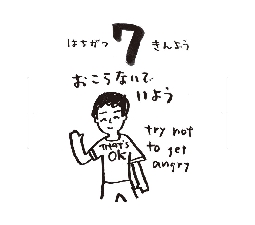 はちがつ 7 きんよう
おこらないで
いよう
try not
to get
angry
THAT'S
OK